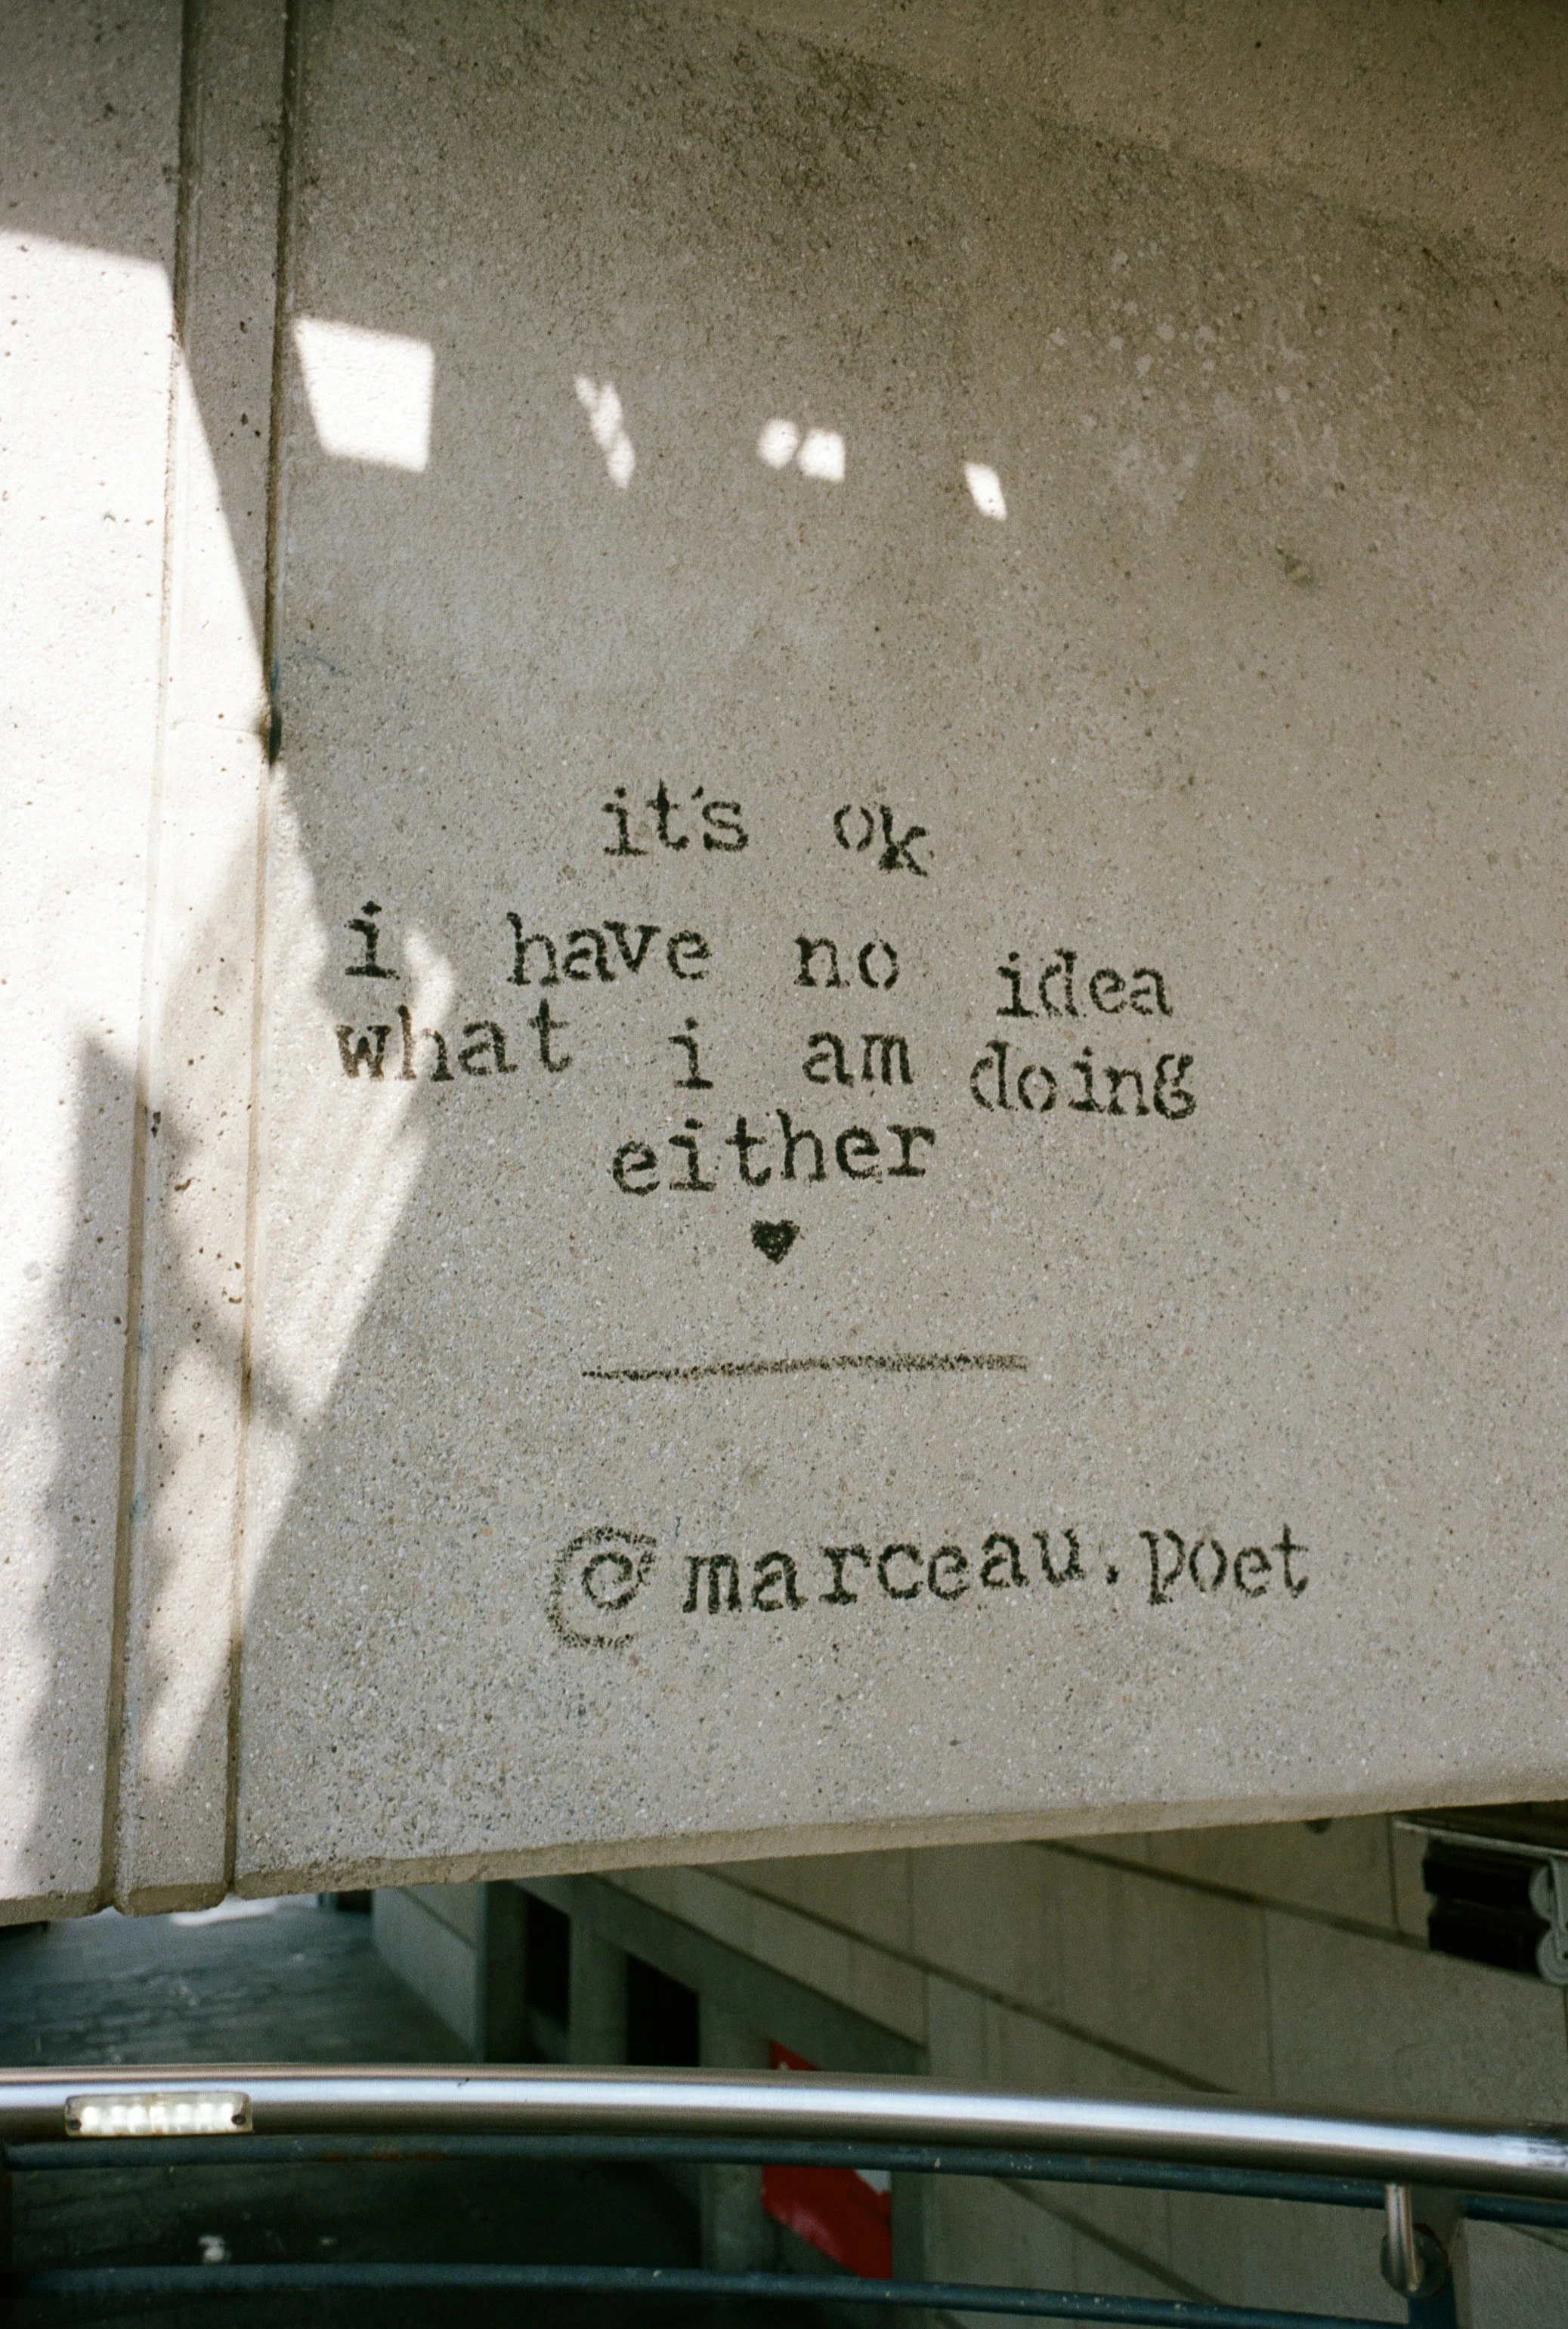 it's ok
i have no idea
what i am doing
either
♥
@marceau.poet